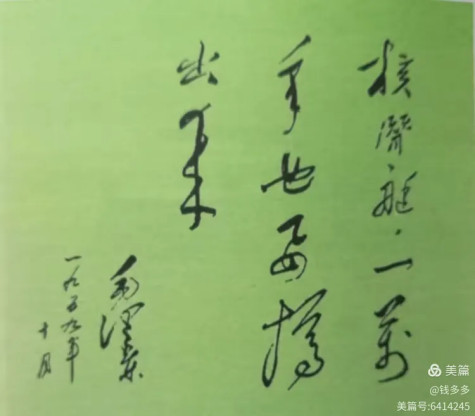 核潜艇,一万
年也要搞
出来
毛泽东
一九五九年
十月
美篇
@钱多多
美篇号:6414245